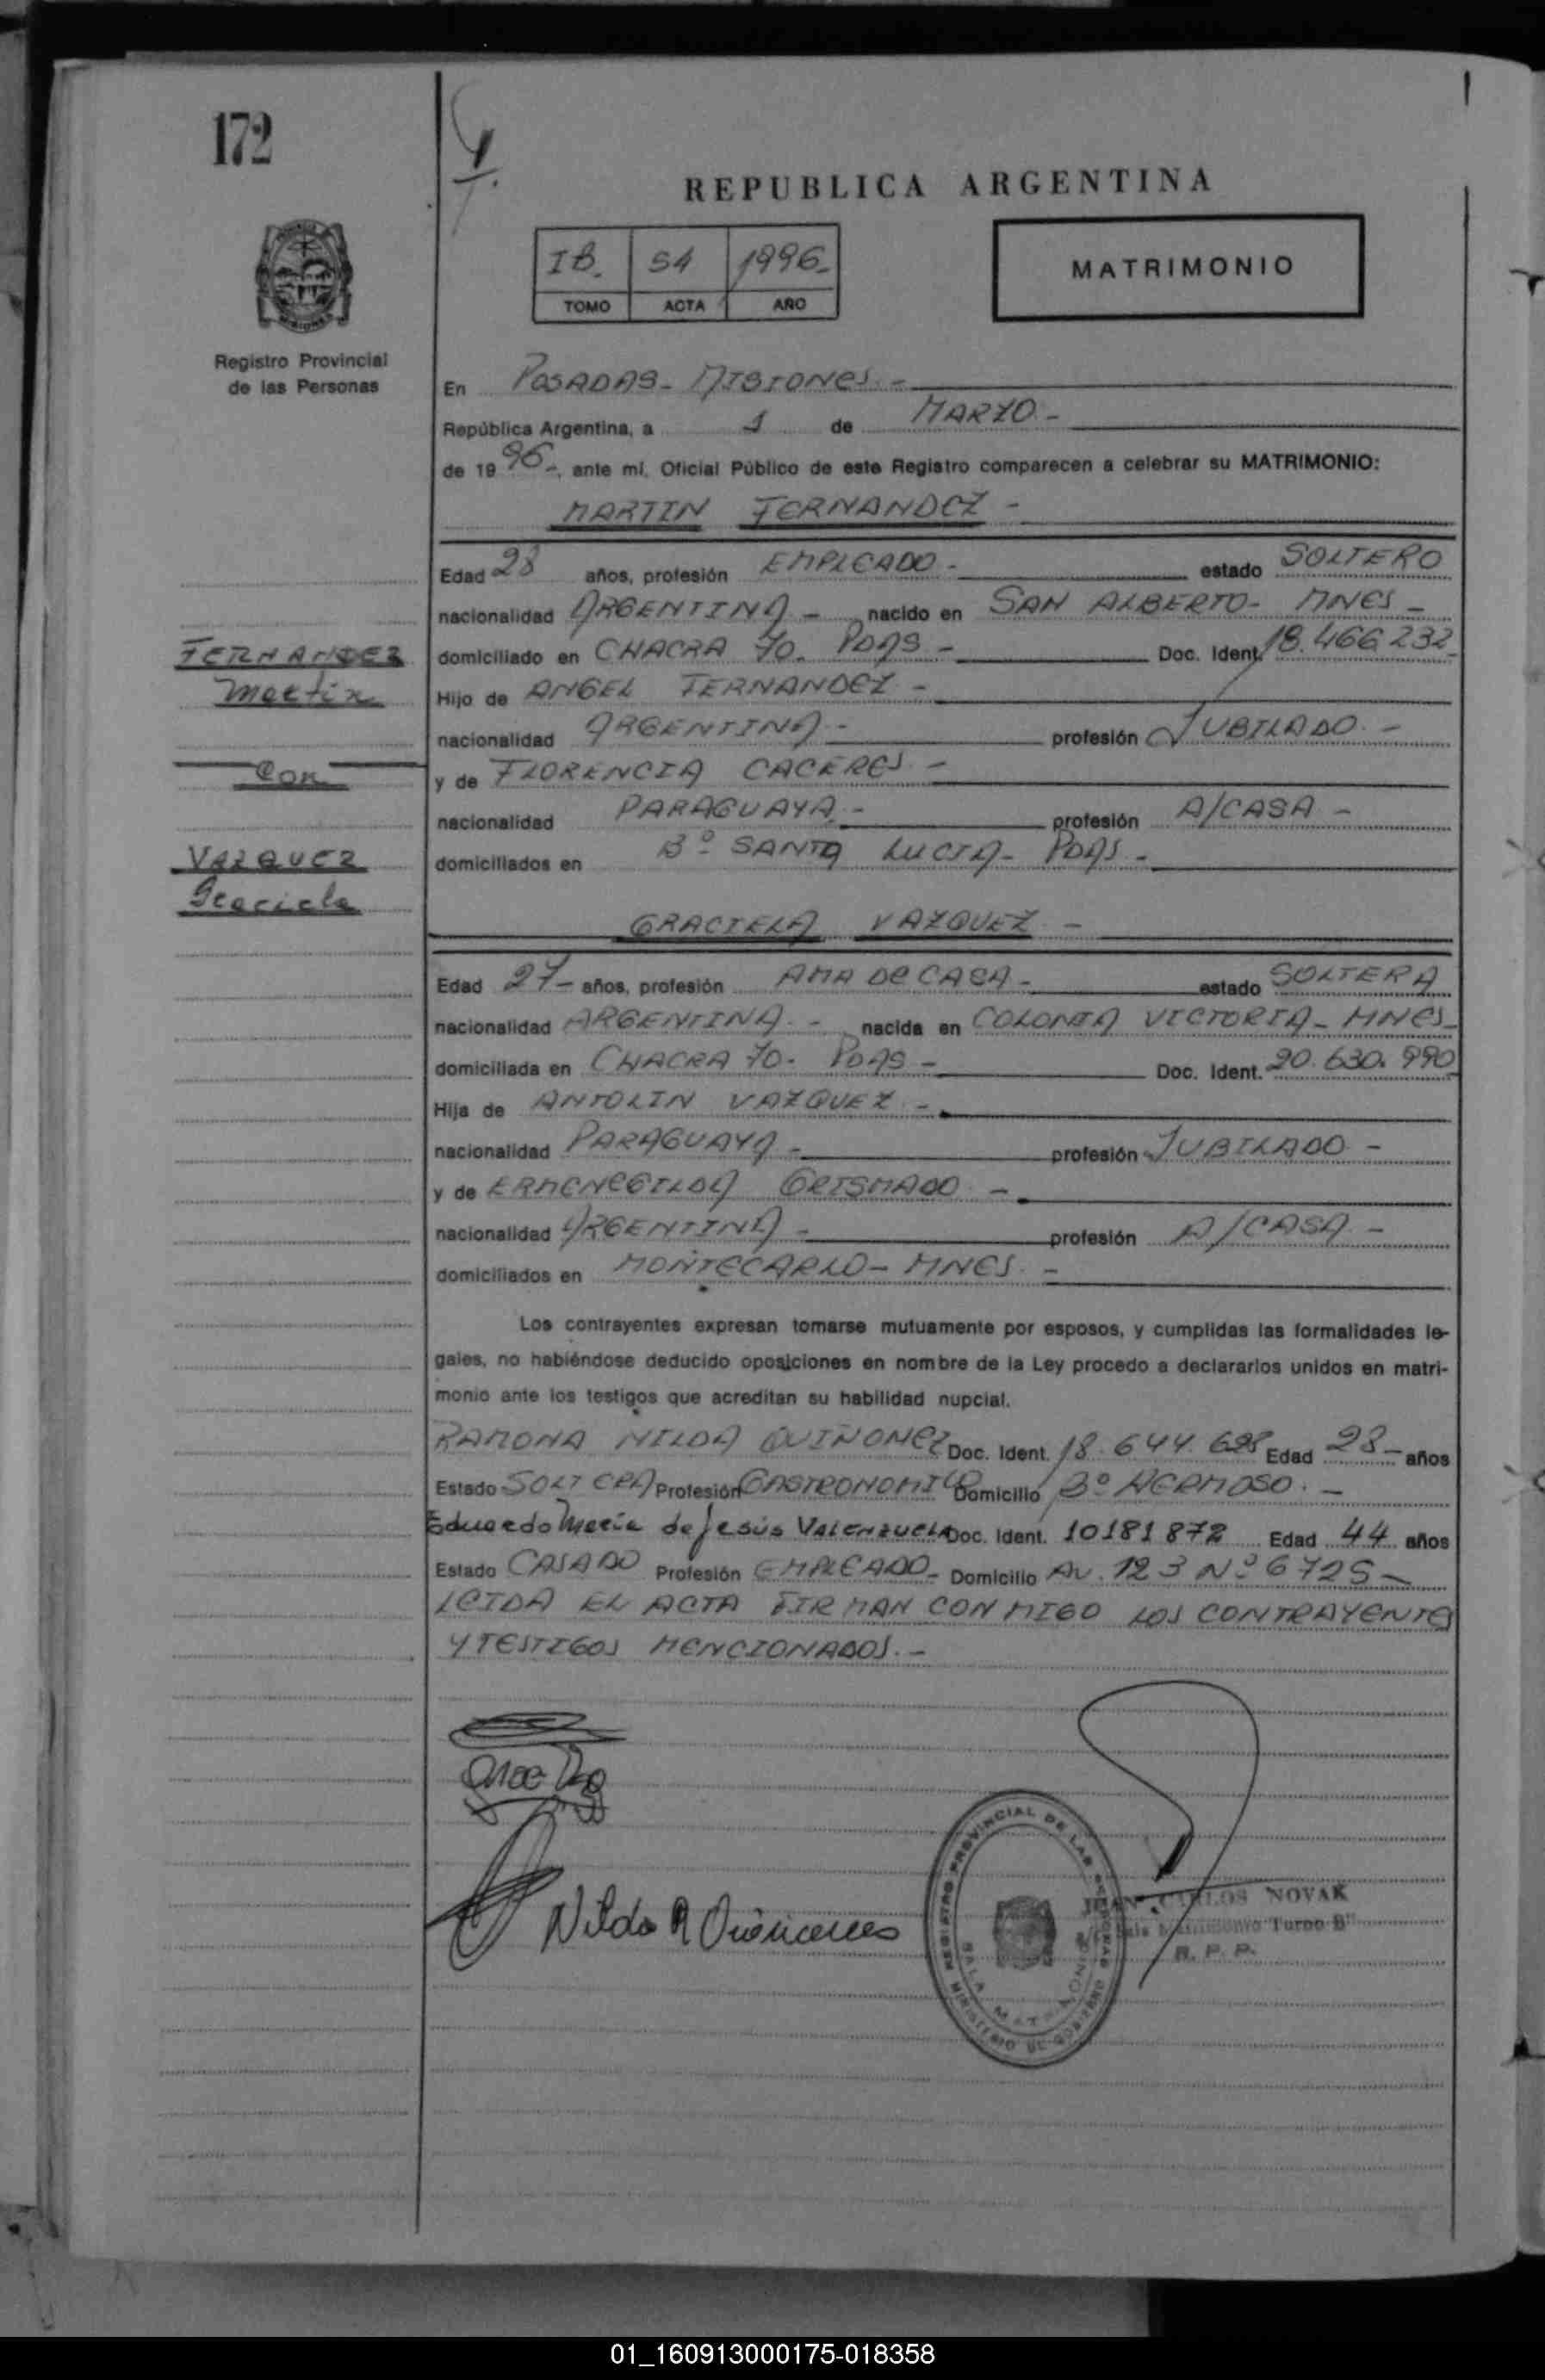 172
REPUBLICA ARGENTINA
IB. 54 1996.-
TOMO ACTA AÑO
MATRIMONIO
Registro Provincial
de las Personas
En POSADAS - MISIONES.-
República Argentina, a 1 de MARZO.-
de 1996-, ante mí, Oficial Público de este Registro comparecen a celebrar su MATRIMONIO:
MARTIN FERNANDEZ -
Edad 28 años, profesión EMPLEADO - estado SOLTERO
nacionalidad ARGENTINA - nacido en SAN ALBERTO - MNES -
domiciliado en CHACRA 70. PDAS - Doc. Ident. 18.466.232
Hijo de ANGEL FERNANDEZ -
nacionalidad ARGENTINA - profesión JUBILADO. -
y de FLORENCIA CACERES -
nacionalidad PARAGUAYA.- profesión A/CASA -
domiciliados en Bº SANTA LUCIA - PDAS -
FERNANDEZ
Martin
Con
VAZQUEZ
Graciela
GRACIELA VAZQUEZ -
Edad 27- años, profesión AMA DE CASA - estado SOLTERA
nacionalidad ARGENTINA. - nacida en COLONIA VICTORIA - MNES-
domiciliada en CHACRA 70 - PDAS - Doc. Ident. 20.630.990
Hija de ANTOLIN VAZQUEZ. -
nacionalidad PARAGUAYA - profesión JUBILADO -
y de ERMENEGILDA GRISMADO -
nacionalidad ARGENTINA - profesión A/CASA -
domiciliados en MONTECARLO - MNES. -
Los contrayentes expresan tomarse mutuamente por esposos, y cumplidas las formalidades le-
gales, no habiéndose deducido oposiciones en nombre de la Ley procedo a declararlos unidos en matri-
monio ante los testigos que acreditan su habilidad nupcial.
RAMONA NILDA QUIÑONEZ Doc. Ident. 18.644.698 Edad 28- años
Estado SOLTERA Profesión GASTRONOMICO Domicilio Bº HERMOSO. -
Eduardo Maria de Jesús VALENZUELA Doc. Ident. 10181872 Edad 44 años
Estado CASADO Profesión EMPLEADO - Domicilio AV. 123 Nº 6725 -
LEIDA EL ACTA FIRMAN CONMIGO LOS CONTRAYENTES
Y TESTIGOS MENCIONADOS. -
REGISTRO PROVINCIAL DE LAS PERSONAS
SALA MATRIMONIOS
MINISTERIO DE GOBIERNO
JUAN CARLOS NOVAK
Turno B"
R. P. P.
01_160913000175-018358